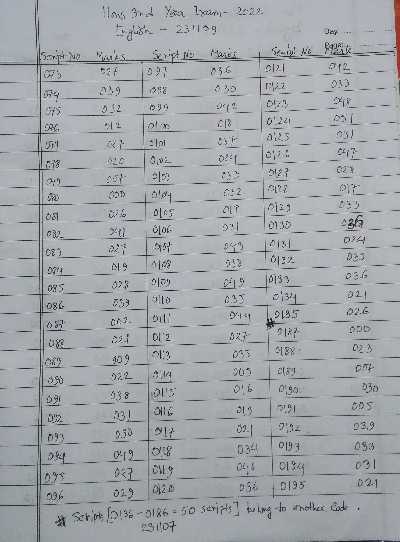 Hons Year Exam- 2022
English -
Script No Marks Script No Marks Script No Marks
073 027 097 036 0121 042
074 039 098 030 0122 033
075 032 099 042 0123 048
076 012 0100 018 0124 031
077 027 0101 037 0125 031
078 020 0102 024 0126 047
079 007 0103 033 0127 028
080 000 0104 022 0128 017
081 026 0105 017 0129 033
082 041 0106 031 0130 036
083 027 0107 043 0131 024
084 019 0108 038 0132 033
085 028 0109 049 0133 036
086 039 0110 035 0134 021
087 002 0111 044 0135 026
088 021 0112 027 # 0187 000
089 009 0113 033 0188 023
090 022 0114 003 0189 007
091 038 0115 016 0190 030
092 031 0116 013 0191 005
093 030 0117 021 0192 039
094 049 0118 034 0193 033
095 027 0119 046 0194 031
096 029 0120 036 0195 021
# Scripts [0136 - 0186 = 50 scripts] belong to another Code .
231107